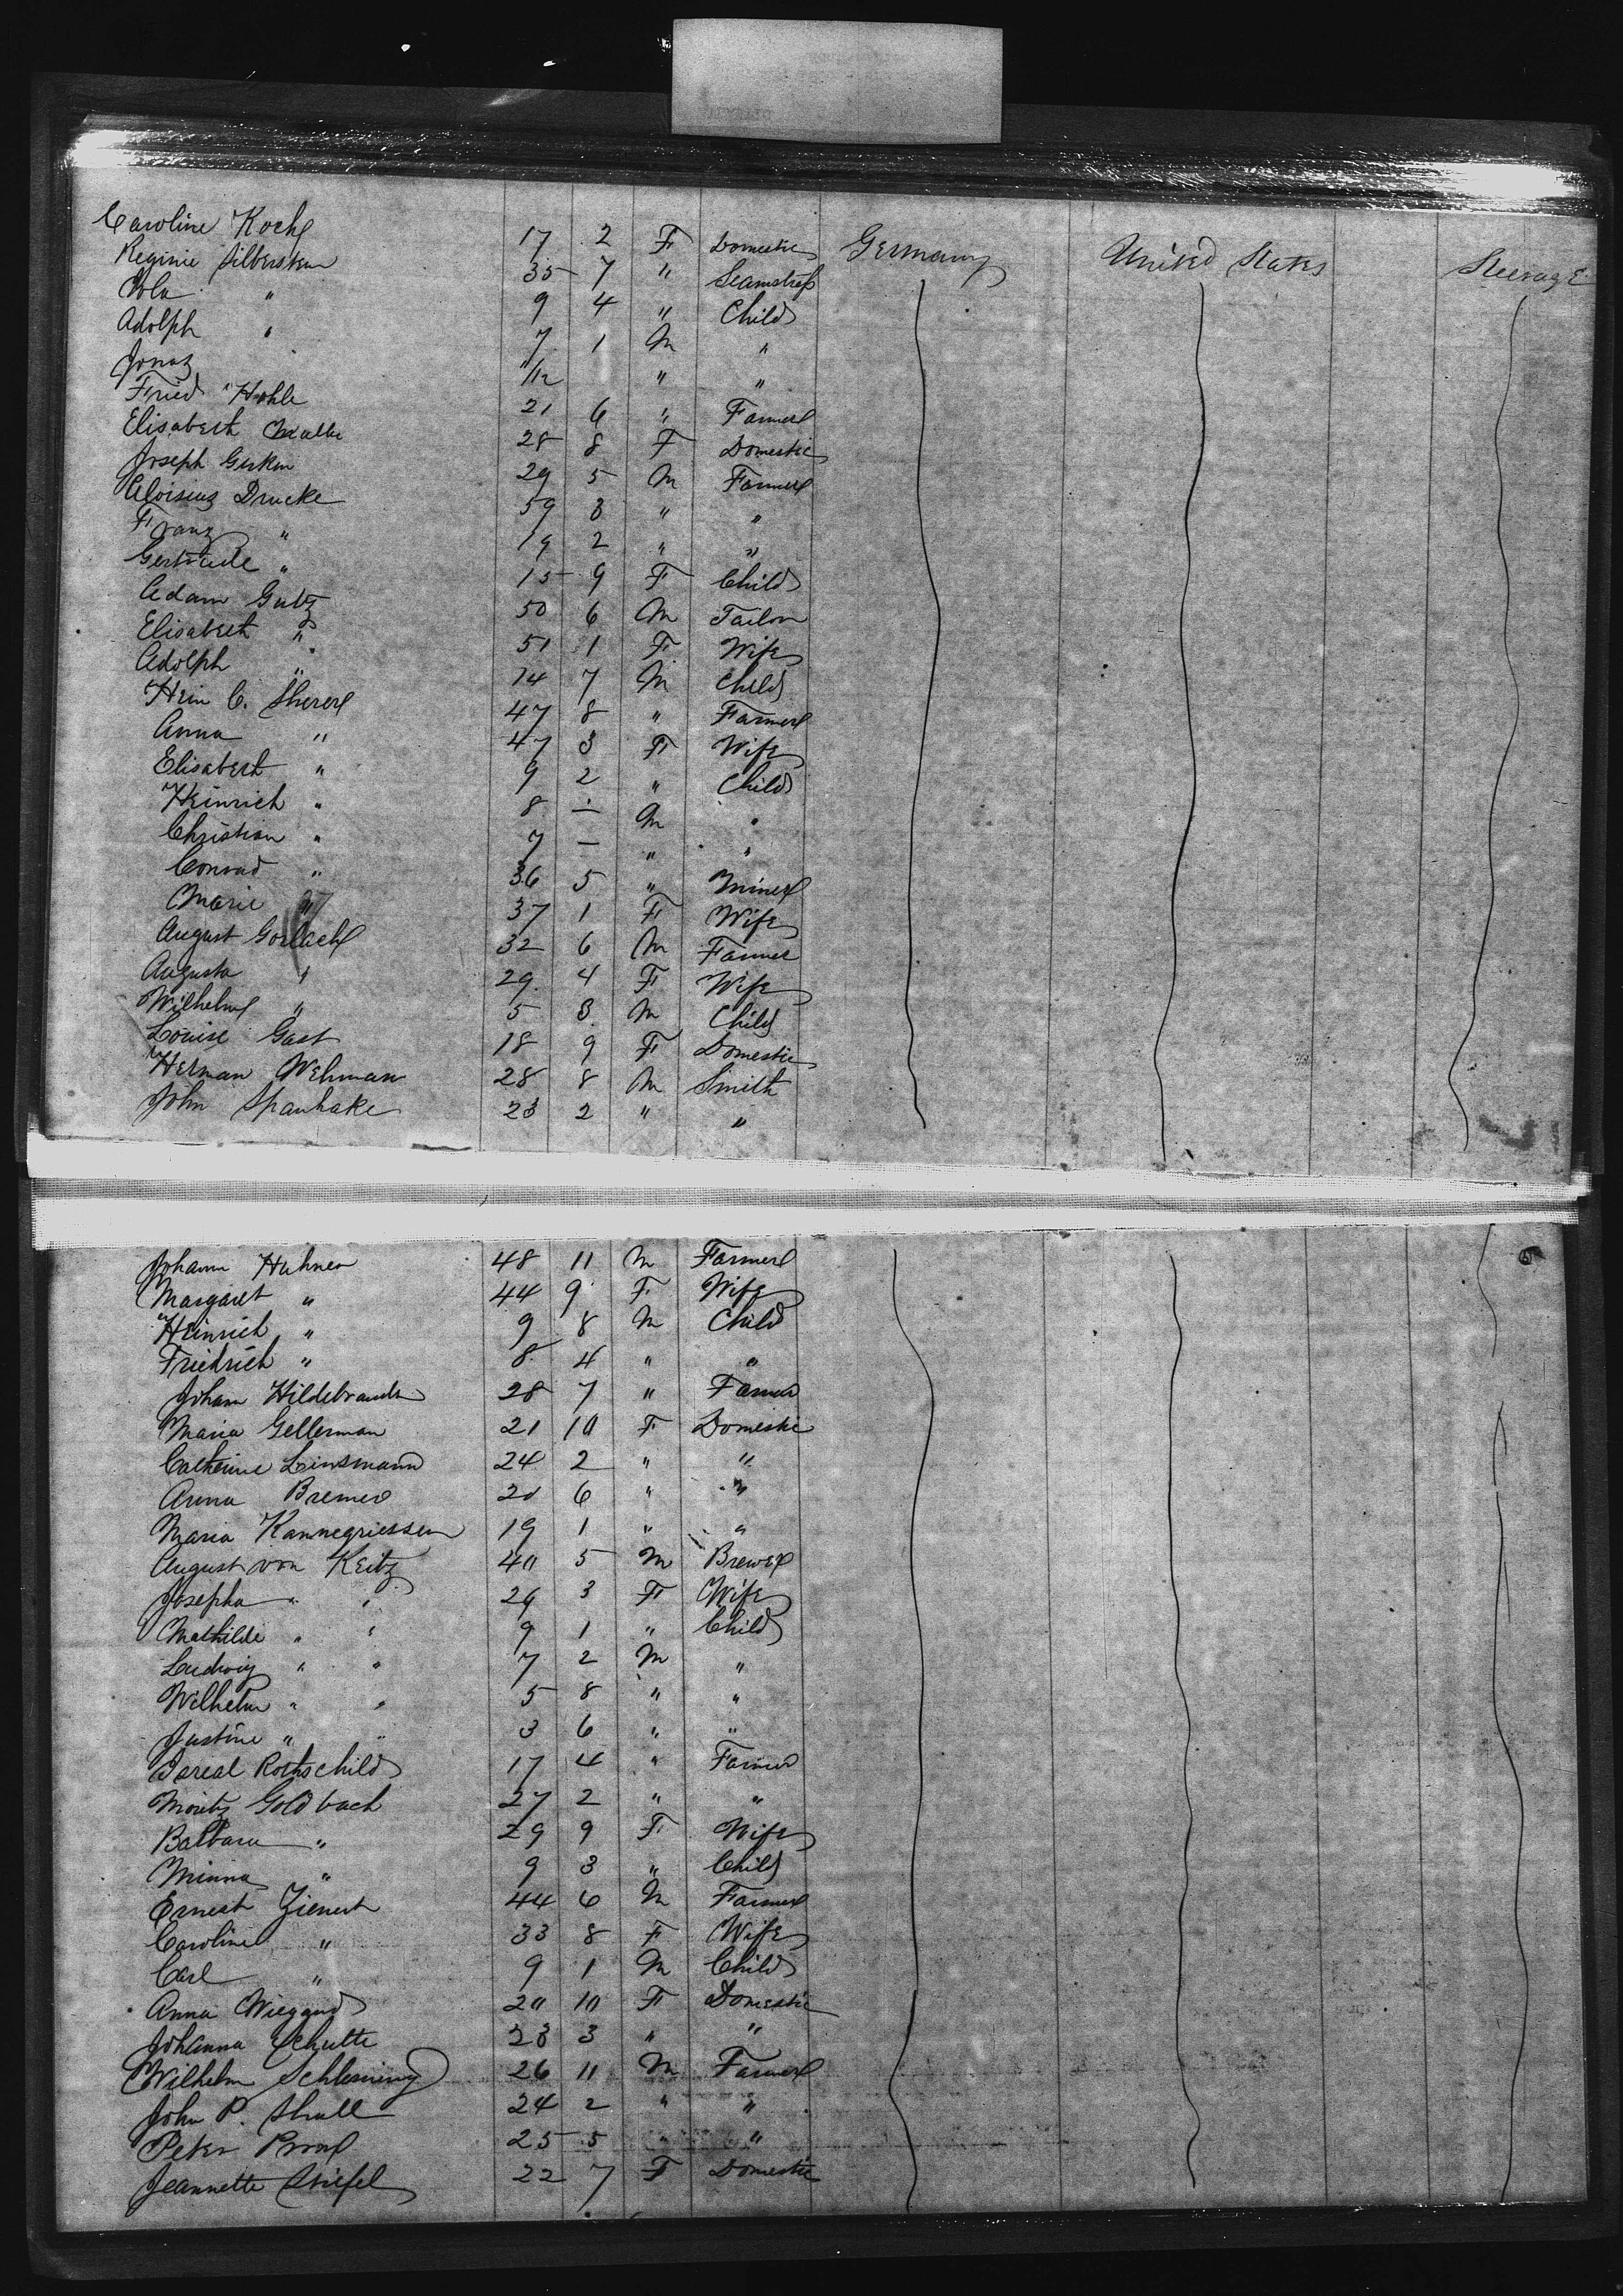 Caroline Koch 17 2 F Domestic Germany United States Steerage
Reginie Silberstein 35 7 " Seamstress
" 9 4 " Child
Adolph " 7 1 M "
Jonas 11/12 " "
Fried Hohle 21 6 " Farmer
Elisabeth Muller 28 8 F Domestic
Joseph Gerken 29 5 M Farmer
Aloisius Drucke 59 3 " "
Franz " 19 2 " "
Gertrude " 15 9 F Child
Adam Gutz 50 6 M Tailor
Elisabeth " 51 1 F Wife
Adolph " 14 7 M Child
Hein C. Sherer 47 8 " Farmer
Anna " 47 3 F Wife
Elisabeth " 9 2 " Child
Heinrich " 8 – M "
Christian " 7 – " "
Conrad " 36 5 " Miner
Marie " 37 1 F Wife
August Gorlach 32 6 M Farmer
Augusta " 29 4 F Wife
Wilhelm " 5 3 M Child
Louise Gast 18 9 F Domestic
Herman Wehman 28 8 M Smith
John Spanhake 23 2 " "
Johann Huhner 48 11 M Farmer
Margaret " 44 9 F Wife
Heinrich " 9 8 M Child
Friedrich " 8 4 " "
Johann Hildebrandt 28 7 " Farmer
Maria Gellerman 21 10 F Domestic
Catherine Linsmann 24 2 " "
Anna Bremer 20 6 " "
Maria Kannegriesser 19 1 " "
August von Keitz 40 5 M Brewer
Josepha " " 29 3 F Wife
Mathilde " " 9 1 " Child
Ludwig " " 7 2 M "
Wilhelm " " 5 8 " "
Justine " " 3 6 " "
Isreal Rothschild 17 4 " Farmer
Moritz Goldbach 27 2 " "
Barbara " 29 9 F Wife
Minna " 9 3 " Child
Ernest Zienert 44 6 M Farmer
Caroline " 33 8 F Wife
Carl " 9 1 M Child
Anna Wieggand 20 10 F Domestic
Johanna Schulte 23 3 " "
Wilhelm Schlesning 26 11 M Farmer
John P. Shull 24 2 " "
Peter 25 5 " "
Jeannette Stiefel 22 7 F Domestic